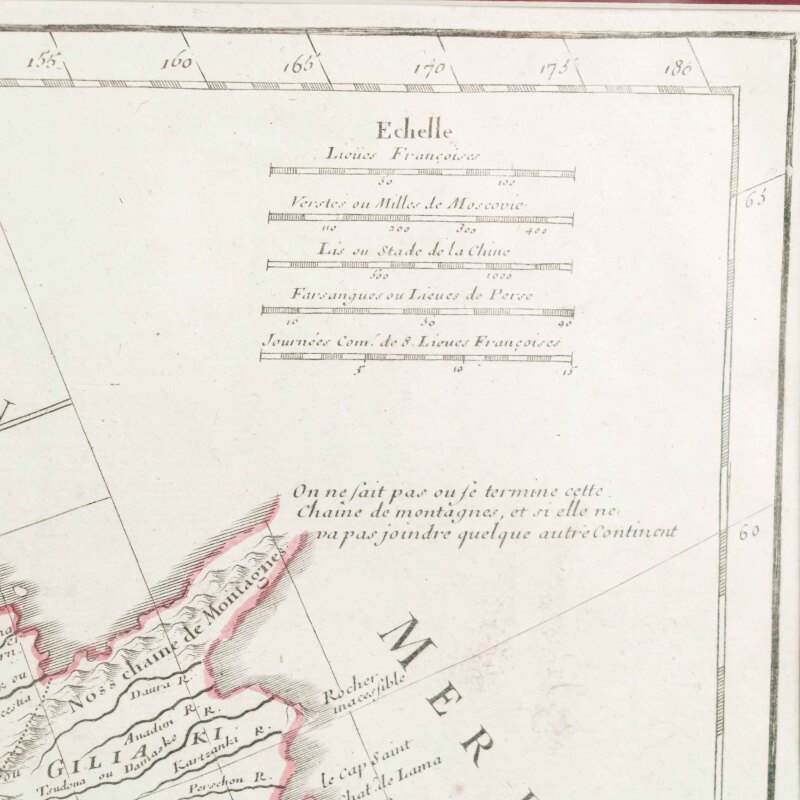 155 160 165 170 175 180
Echelle
Lieües Françoises
50 100
Verstes ou Milles de Moscovie
110 200 300 400
65
Lis ou Stade de la Chine
500 1000
Farsangues ou Lieues de Perse
10 50 90
Journées Com. de 8. Lieues Françoises
5 10 15
On ne sait pas ou se termine cette
Chaîne de montagnes, et si elle ne
va pas joindre quelque autre Continent
60
Noss chaine de Montagnes
MER
Rocher
inacessible
Daura R.
Anadun R.
R.
GILIAKI
Tsudona ou Damasko
Kartzanki R.
Perschon R.
le Cap Saint
Chat de Lama
ou